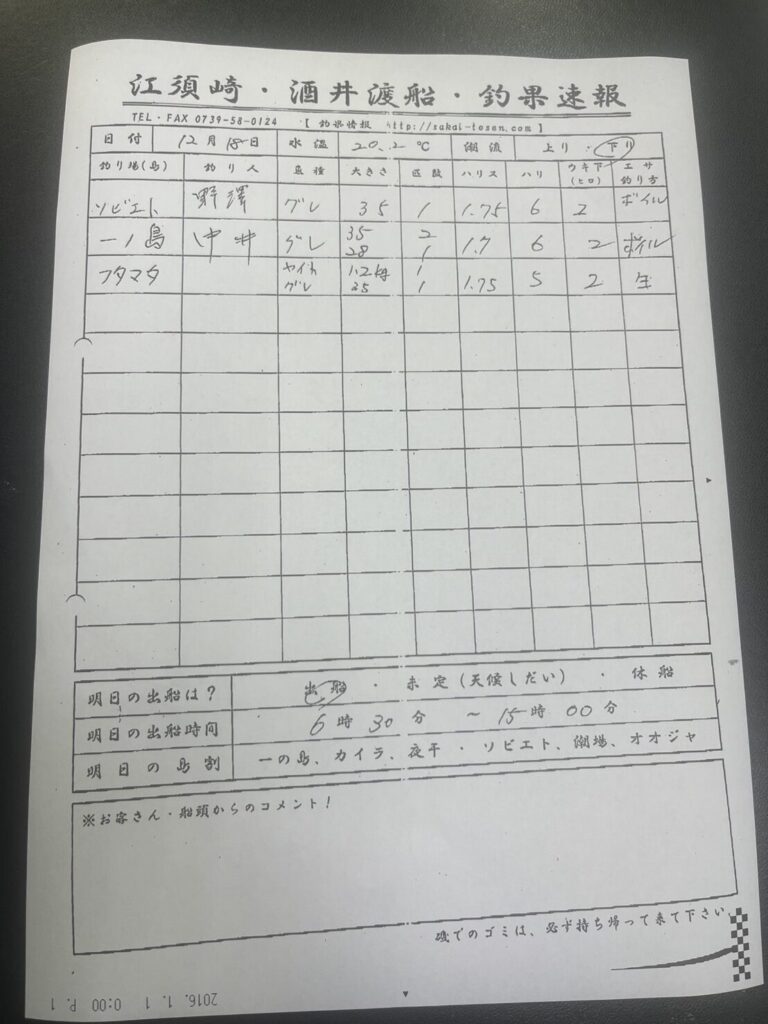 江須崎・酒井渡船・釣果速報
TEL・FAX 0739-58-0124 【 釣果情報 http://sakai-tosen.com 】
日付 12月18日 水温 20.2℃ 潮流 上り・下り
釣り場(島) 釣り人 魚種 大きさ 匹数 ハリス ハリ ウキ下(ヒロ) エサ釣り方
ソビエト 野澤 グレ 35 1 1.75 6 2 ボイル
一ノ島 中井 グレ 35 2 1.7 6 2 ボイル
28 1
フタマタ ヤイカ 1.2kg 1 1.75 5 2 生
グレ 25 1
明日の出船は? 出船 ・ 未定(天候しだい) ・ 休船
明日の出船時間 6時30分 ~15時00分
明日の島割 一の島、カイラ、夜干 ・ ソビエト、潮場、オオジャ
※お客さん・船頭からのコメント!
磯でのゴミは、必ず持ち帰って来て下さい
2016. 1. 1 0:00 P. 1